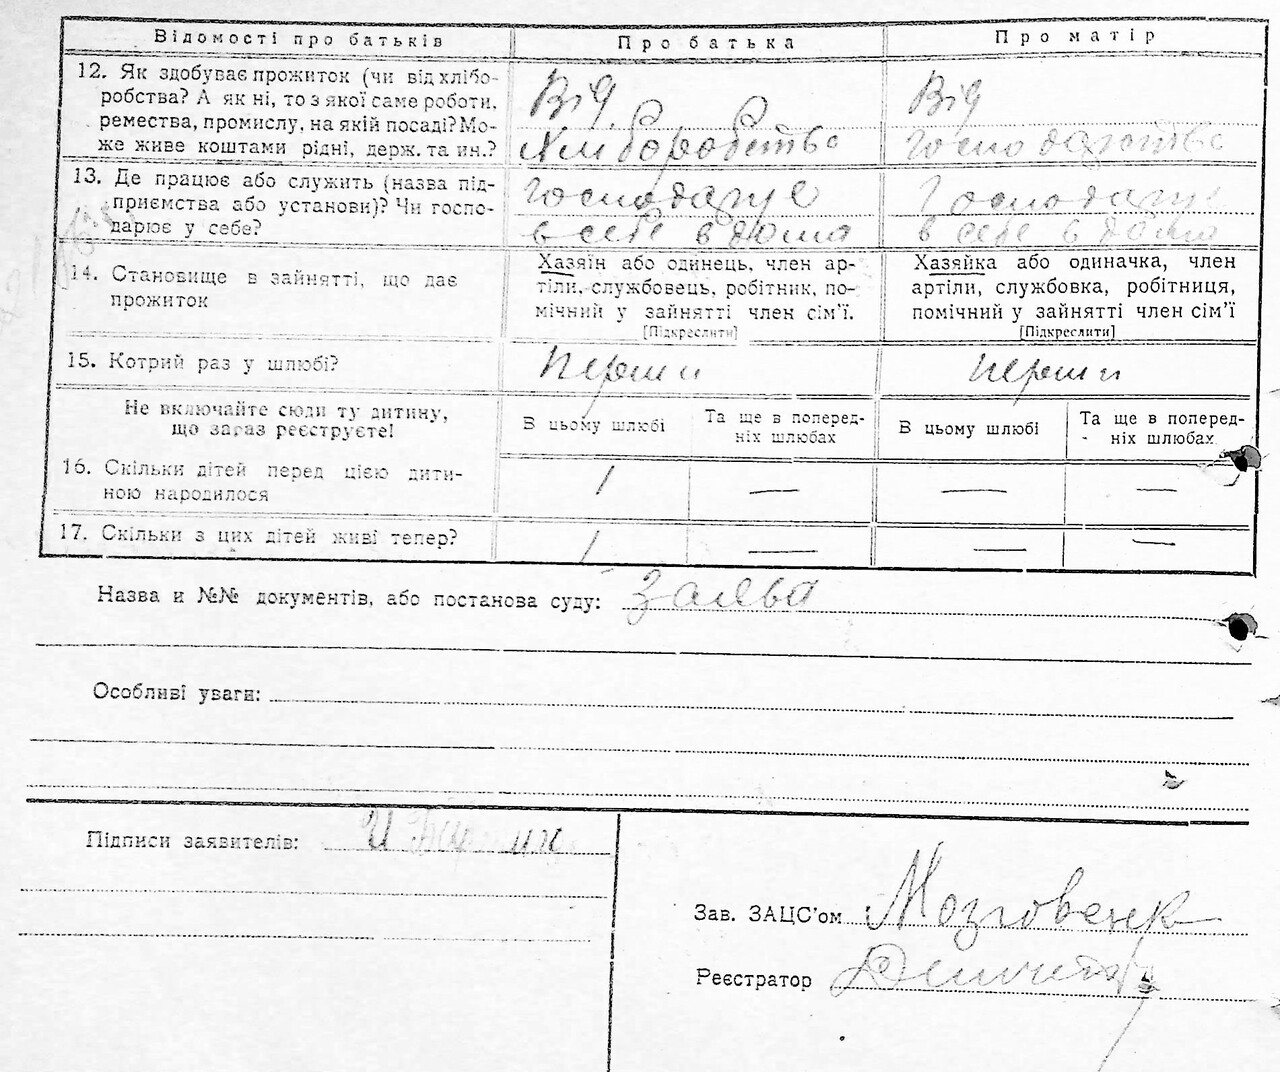 Відомості про батьків Про батька Про матір
12. Як здобуває прожиток (чи від хлібо-
робства? А як ні, то з якої саме роботи,
ремества, промислу, на якій посаді? Мо-
же живе коштами рідні, держ. та ин.?
Від
Хлиборобства
Від
Господарства
13. Де працює або служить (назва під-
приємства або установи)? Чи госпо-
дарює у себе?
Господарує
в себе в дома
Господарує
в себе в дома
14. Становище в зайнятті, що дає
прожиток
Хазяїн або одинець, член ар-
тіли, службовець, робітник, по-
мічний у зайнятті член сім'ї.
[Підкреслити]
Хазяйка або одиначка, член
артіли, службовка, робітниця,
помічний у зайнятті член сім'ї
[Підкреслити]
15. Котрий раз у шлюбі? перши перши
Не включайте сюди ту дитину,
що зараз реєструєте!
В цьому шлюбі
Та ще в поперед-
ніх шлюбах
В цьому шлюбі
Та ще в поперед-
ніх шлюбах
16. Скільки дітей перед цією дити-
ною народилося
1 — — —
17. Скільки з цих дітей живі тепер? 1 — — —
Назва и №№ документів, або постанова суду: Заява
Особливі уваги:
Підписи заявителів:
Зав. ЗАЦС'ом Мозговенк
Реєстратор